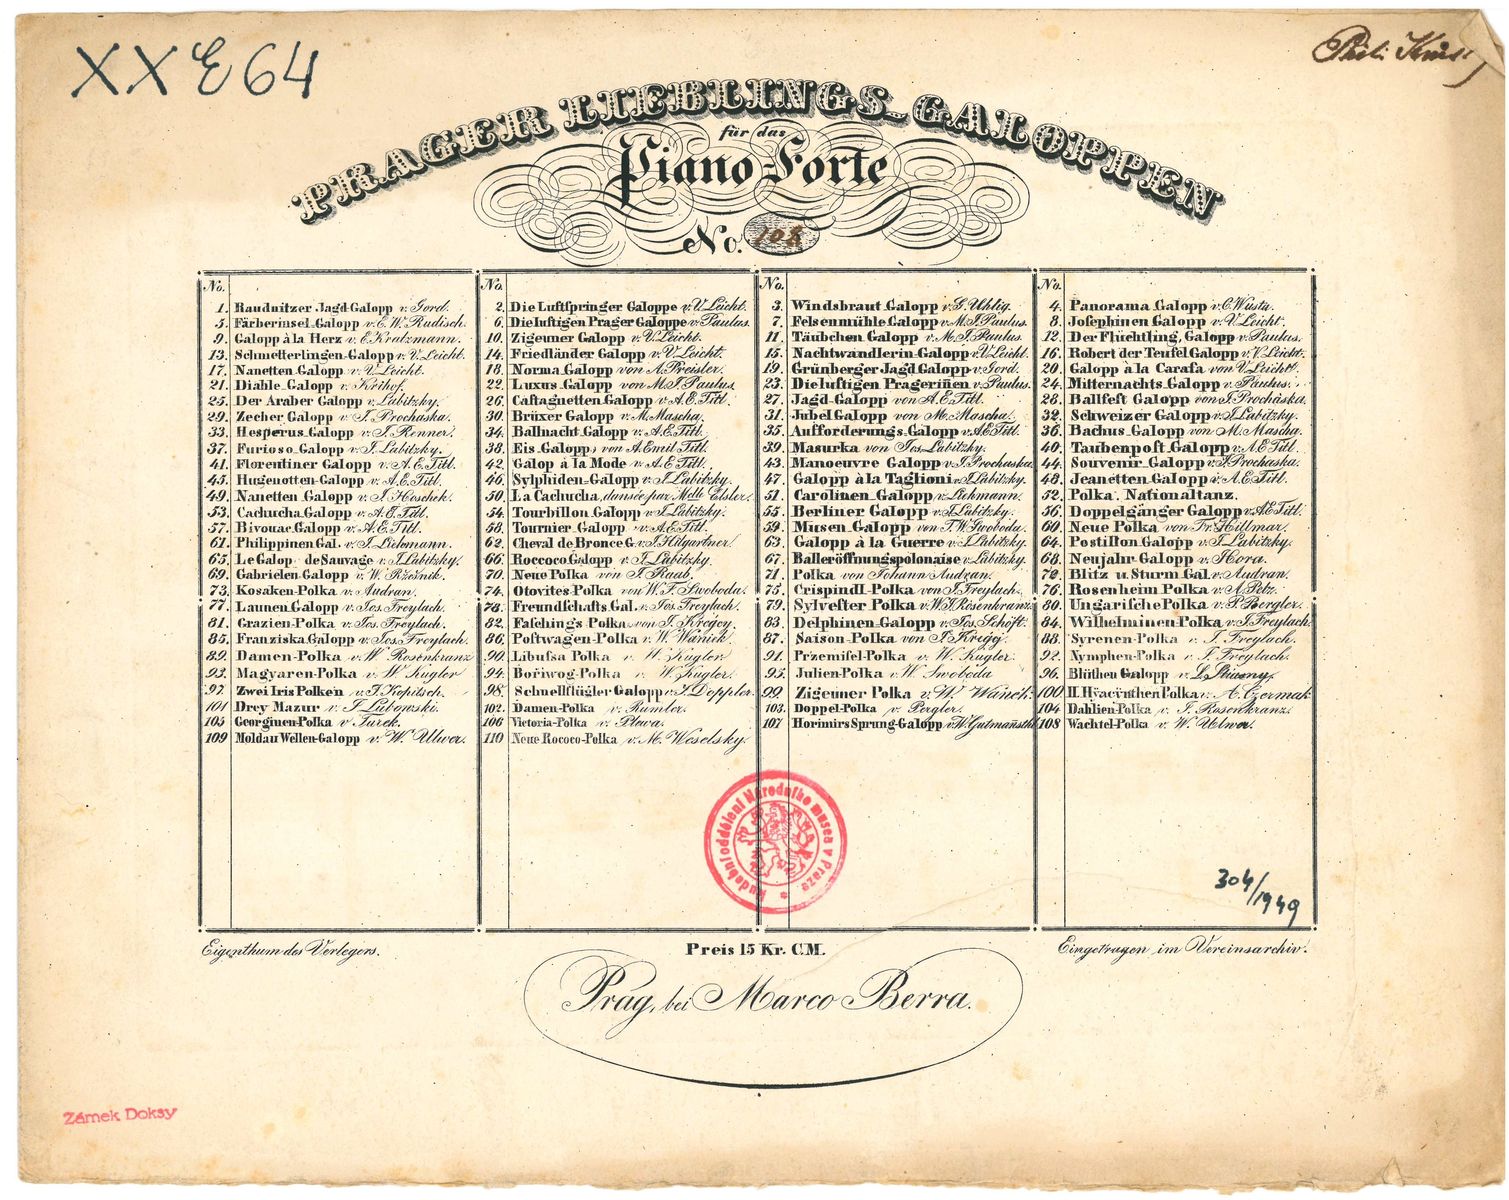 XX E 64
PRAGER LIEBLINGS-GALOPPEN
für das
Piano-Forte
No. 108
No.
1. Raudnitzer Jagd-Galopp v. Gord.
5. Färberinsel-Galopp v. E.W. Rudisch.
9. Galopp à la Herz v. E. Kratzmann.
13. Schmetterlingen-Galopp v. V. Leicht.
17. Nanetten-Galopp v. V. Leicht.
21. Diable-Galopp v. Krihof.
25. Der Araber Galopp v. Labitzky.
29. Zecher Galopp v. J. Prochaska.
33. Hesperus-Galopp v. J. Renner.
37. Furioso-Galopp v. J. Labitzky.
41. Florentiner Galopp v. A.E. Titl.
45. Hugenotten-Galopp v. A.E. Titl.
49. Nanetten Galopp v. J. Hoschek.
53. Cachucha-Galopp v. A.E. Titl.
57. Bivouac-Galopp v. A.E. Titl.
61. Philippinen Gal. v. J. Liehmann.
65. Le Galop de Sauvage v. J. Labitzky.
69. Gabrielen-Galopp v. W. Rzeznik.
73. Kosaken-Polka v. Audran.
77. Launen-Galopp v. Jos. Freylach.
81. Grazien-Polka v. Jos. Freylach.
85. Franziska-Galopp v. Jos. Freylach.
89. Damen-Polka v. W. Rosenkranz
93. Magyaren-Polka v. W. Kugler
97. Zwei Iris Polken v. J. Kopitsch.
101 Drey Mazur v. J. Lubowski.
105 Georginen-Polka v. Turek.
109 Moldau Wellen-Galopp v. W. Ulwer.
No.
2. Die Luftspringer Galoppe v. V. Leicht.
6. Die lustigen Prager Galoppe v. Paulus.
10. Zigeuner Galopp v. V. Leicht.
14. Friedländer Galopp v. V. Leicht.
18. Norma-Galopp von A. Preisler.
22. Luxus-Galopp von M.J. Paulus.
26. Castagnetten-Galopp v. A.E. Titl.
30. Brüxer Galopp v. M. Mascha.
34. Ballnacht-Galopp v. A.E. Titl.
38. Eis-Galopp, von A. Emil Titl.
42. Galop à la Mode v. A.E. Titl.
46. Sylphiden-Galopp v. J. Labitzky.
50. La Cachucha, dansée par Melle Elsler.
54. Tourbillon Galopp v. J. Labitzky.
58. Tournier-Galopp v. A.E. Titl.
62. Cheval de Bronce G. v. J. Hilgartner.
66. Roccoco Galopp v. J. Labitzky.
70. Neue Polka von J. Raab.
74. Otovites-Polka von W.F. Swoboda.
78. Freundschafts Gal. v. Jos. Freylach.
82. Faschings Polka von J. Kregcy.
86. Postwagen-Polka v. W. Wanick.
90. Libussa Polka v. W. Kugler.
94. Bořiwog-Polka v. W. Kugler.
98. Schnellflügler Galopp v. J. Doppler.
102. Damen-Polka v. Rumler.
106 Victoria-Polka v. Plewa.
110 Neue Rococo-Polka v. M. Weselsky.
No.
3. Windsbraut-Galopp v. G. Uhlig.
7. Felsenmühle-Galopp v. M.J. Paulus.
11. Täubchen Galopp v. M.J. Paulus.
15. Nachtwandlerin-Galopp v. V. Leicht.
19. Grünberger Jagd Galopp v. Gord.
23. Die lustigen Pragerin̄en v. Paulus.
27. Jagd-Galopp von A.E. Titl.
31. Jubel Galopp von M. Mascha.
35. Aufforderungs-Galopp v. A.E. Titl.
39. Masurka von Jos. Labitzky.
43. Manoeuvre Galopp v. J. Prochaska.
47. Galopp à la Taglioni v. J. Labitzky.
51. Carolinen-Galopp v. Liehmann.
55. Berliner Galopp v. J. Labitzky.
59. Musen-Galopp von F.W. Swoboda.
63. Galopp à la Guerre v. J. Labitzky.
67. Balleröffnungspolonaise v. Labitzky.
71. Polka von Johann Audran.
75. Crispindl-Polka von J. Freylach.
79. Sylvester Polka v. W.J. Rosenkranz
83. Delphinen-Galopp v. Jos. Schöft.
87. Saison-Polka von J. Kregcj.
91. Przemisel-Polka v. W. Kugler.
95. Julien-Polka v. W. Swoboda
99. Zigeuner Polka v. W. Wanick.
103. Doppel-Polka v. Pergler.
107 Horimirs Sprung-Galopp v. W. Gutmansthl.
No.
4. Panorama-Galopp v. C. Wusta.
8. Josephinen Galopp v. V. Leicht.
12. Der Flüchtling, Galopp v. Paulus.
16. Robert der Teufel Galopp v. V. Leicht.
20. Galopp à la Carafa von V. Leicht.
24. Mitternachts Galopp v. Paulus.
28. Ballfest Galopp von J. Procháska.
32. Schweizer Galopp v. J. Labitzky.
36. Bachus-Galopp von M. Mascha.
40. Taubenpost-Galopp v. A.E. Titl.
44. Souvenir-Galopp v. J. Prochaska.
48. Jeanetten Galopp v. A.E. Titl.
52. Polka. Nationaltanz.
56. Doppelgänger Galopp v. A.E. Titl.
60. Neue Polka von Fr. Hillmar.
64. Postillon Galopp v. J. Labitzky.
68. Neujahr-Galopp v. Hora.
72. Blitz u. Sturm Gal. v. Audran.
76. Rosenheim Polka v. A. Petz.
80. Ungarische Polka v. P. Bergler.
84. Wilhelminen-Polka v. J. Freylach.
88. Syrenen-Polka v. J. Freylach.
92. Nymphen-Polka v. J. Freylach.
96. Blüthen Galopp v. L.
100. II. Hyacinthen Polka v. A. Czermak
104 Dahlien-Polka v. J. Rosenkranz.
108 Wachtel-Polka v. W. Ulwer.
Hudební oddělení Národního musea v Praze *
304/1949
Eigenthum des Verlegers.
Preis 15 Kr. C.M.
Eingetragen im Vereinsarchiv.
Prag, bei Marco Berra.
Zámek Doksy